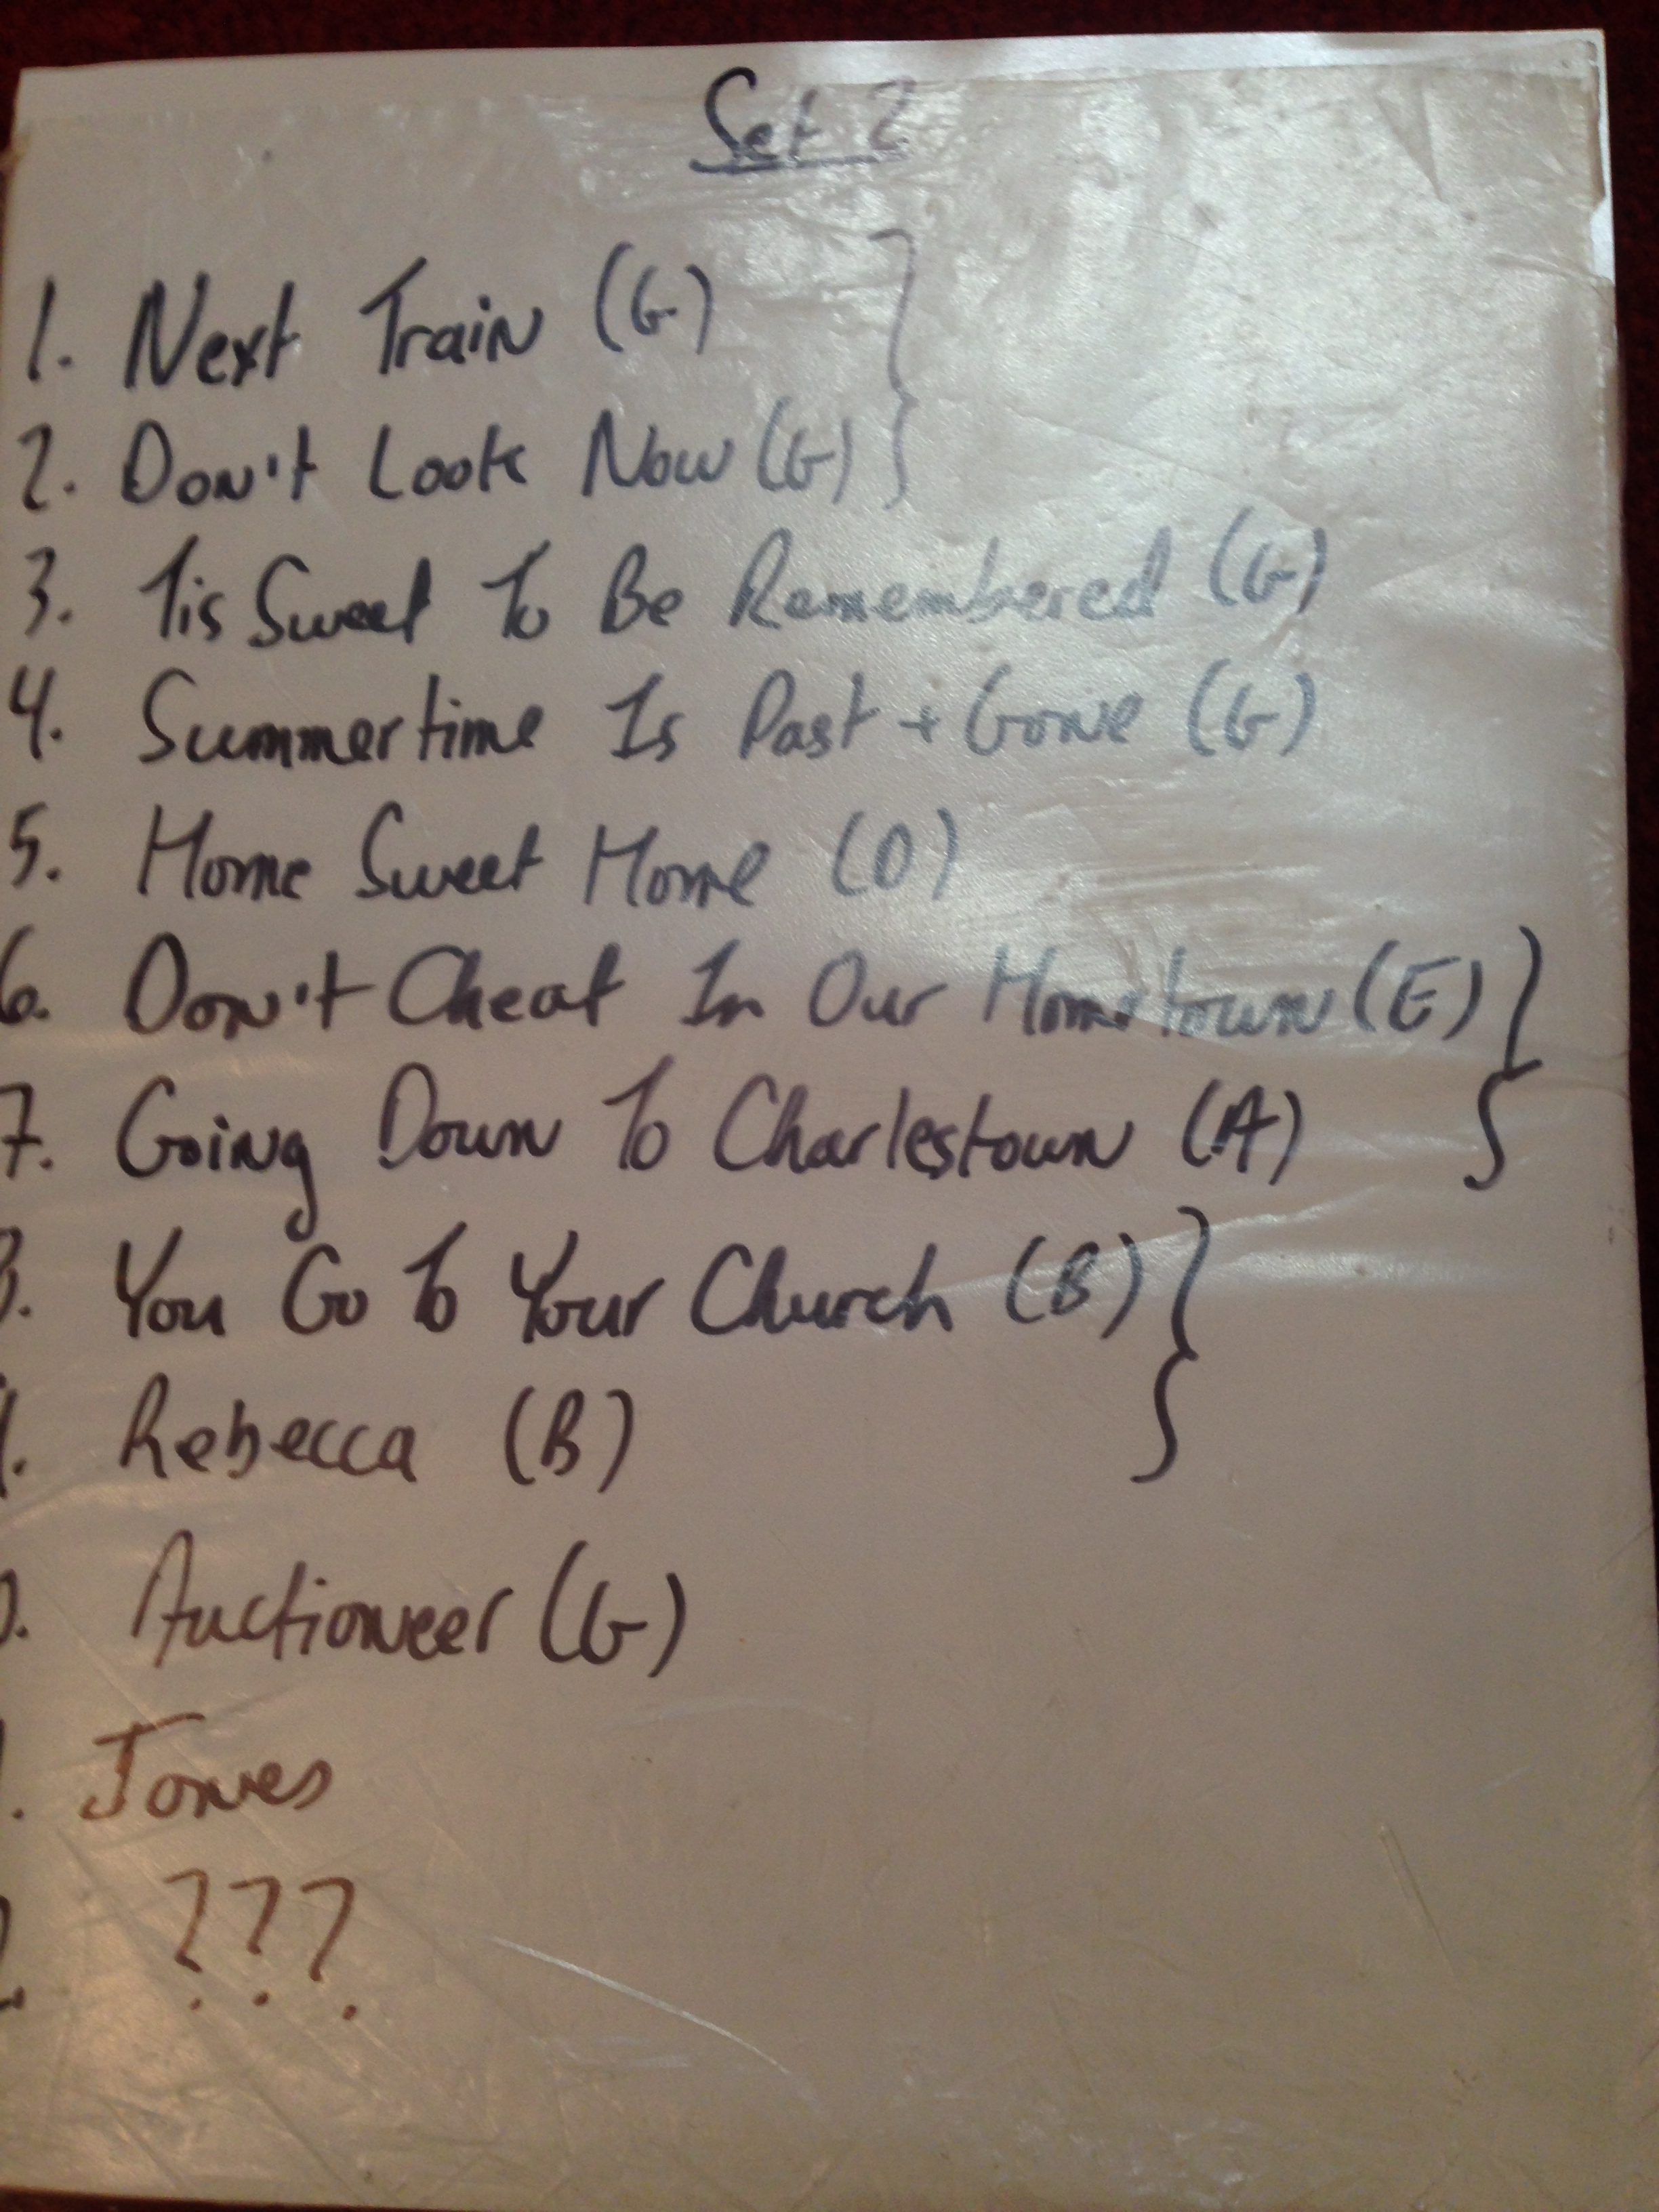 Set 2
1. Next Train (G)
2. Don't Look Now (G)
3. Tis Sweet To Be Remembered (G)
4. Summertime Is Past + Gone (G)
5. Home Sweet Home (D)
6. Don't Cheat In Our Hometown (E)
7. Going Down To Charlestown (A)
8. You Go To Your Church (B)
9. Rebecca (B)
0. Auctioneer (G)
. Jones
2 ???